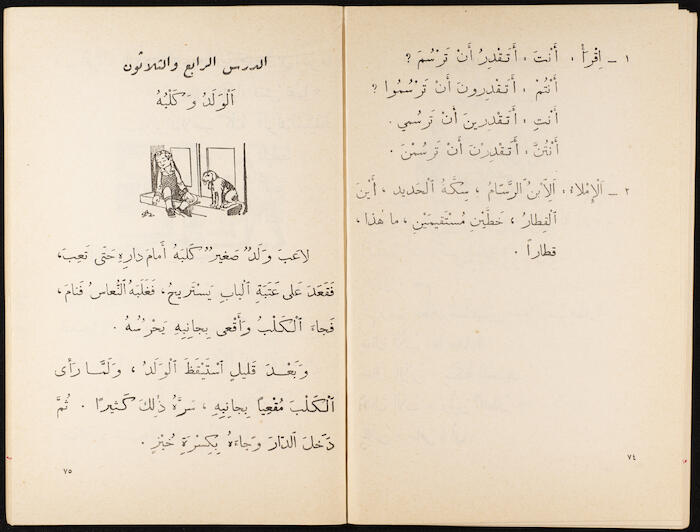 ١ ـ اِقْرَأْ : أَنْتَ ، أَتَقْدِرُ أَنْ تَرْسُمَ ؟
أَنْتُمْ ، أَتَقْدِرونَ أَنْ تَرْسُمُوا ؟
أَنْتِ ، أَتَقْدِرينَ أَنْ تَرْسُمي .
أَنْتُنَّ ، أَتَقْدِرْنَ أَنْ تَرْسُمْنَ .
٢ ـ اَلْإِمْلاءُ : اَلِابنُ الرَّسّامُ ، سِكَّةُ الحَديد ، أَيْنَ
الْقِطارُ ، خَطَّيْنِ مُسْتَقيمَيْنِ ، ما هٰذا ،
قطاراً .
٧٤
الدرس الرابع والثلاثون
اَلْوَلَدُ وَكَلْبُهُ
لاعَبَ وَلَدٌ صَغيرٌ كَلْبَهُ أَمامَ دارِهِ حَتّى تَعِبَ ،
فَقَعَدَ عَلى عَتَبَةِ الْبابِ يَسْتَريحُ ، فَغَلَبَهُ النُّعاسُ فَنامَ ،
فَجاءَ الْكَلْبُ وَأَقْعى بِجانِبِهِ يَحْرُسُهُ .
وَبَعْدَ قَليلٍ اسْتَيْقَظَ الْوَلَدُ ، وَلَمَّا رَأى
الْكَلْبَ مُقْعِياً بِجانِبِهِ ، سَرَّهُ ذٰلِكَ كَثيرًا . ثُمَّ
دَخَلَ الدّارَ وَجاءَهُ بِكِسْرَةِ خُبْزٍ .
٧٥